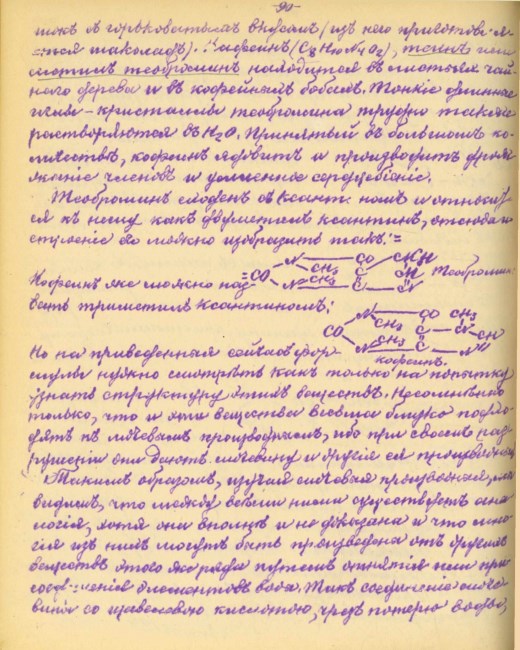 -90-
токъ съ горьковатымъ вкусомъ (изъ него приготовля-
-ется шоколадъ). Кофеинъ (C8H10N4O2), теинъ или
метилъ теоброминъ находится въ листьяхъ чай-
наго дерева и въ кофейныхъ бобахъ. Тонкіе длинные
иглы-кристаллы теобромина трудно также
растворяются въ H2O. Принятый въ большомъ ко-
личествѣ, кофеинъ ядовитъ и производитъ дрожа
жаніе членовъ и усиленное сердцебіеніе.
Теоброминъ сходенъ съ ксант. и относит
ся къ нему какъ двуметилъ ксантинъ, отсюда и
строеніе его можно изобразить такъ:=
=CO N CH3 N CH3 CO C C CH3N CH N Теоброминъ.
Кофеинъ же можно наз-
вать триметилъ ксантиномъ:
CO N CH3 N CH3 CO C C CH3 N CH N
кофеинъ.
Но на приведенныя сейчасъ фор-
мулы нужно смотрѣть какъ только на попытку
узнать структуру этихъ веществъ. Несомнѣнно
только, что и эти вещества весьма близко подхо-
дятъ къ мочевымъ производнымъ, ибо при своемъ раз-
рушеніи они даютъ мочевину и другія ея производныя.
Такимъ образомъ, изучая мочевыя производныя, мы
видимъ, что между всѣми ними существуетъ ана
логія, хотя они вполнѣ и не доказана и что мно-
гія изъ нихъ могутъ быть произведены отъ другихъ
веществъ этого же ряда путемъ отнятія или при
соединенія элементовъ воды. Такъ соединеніе моче-
вины со щавелевою кислотою, чрезъ потерю воды,